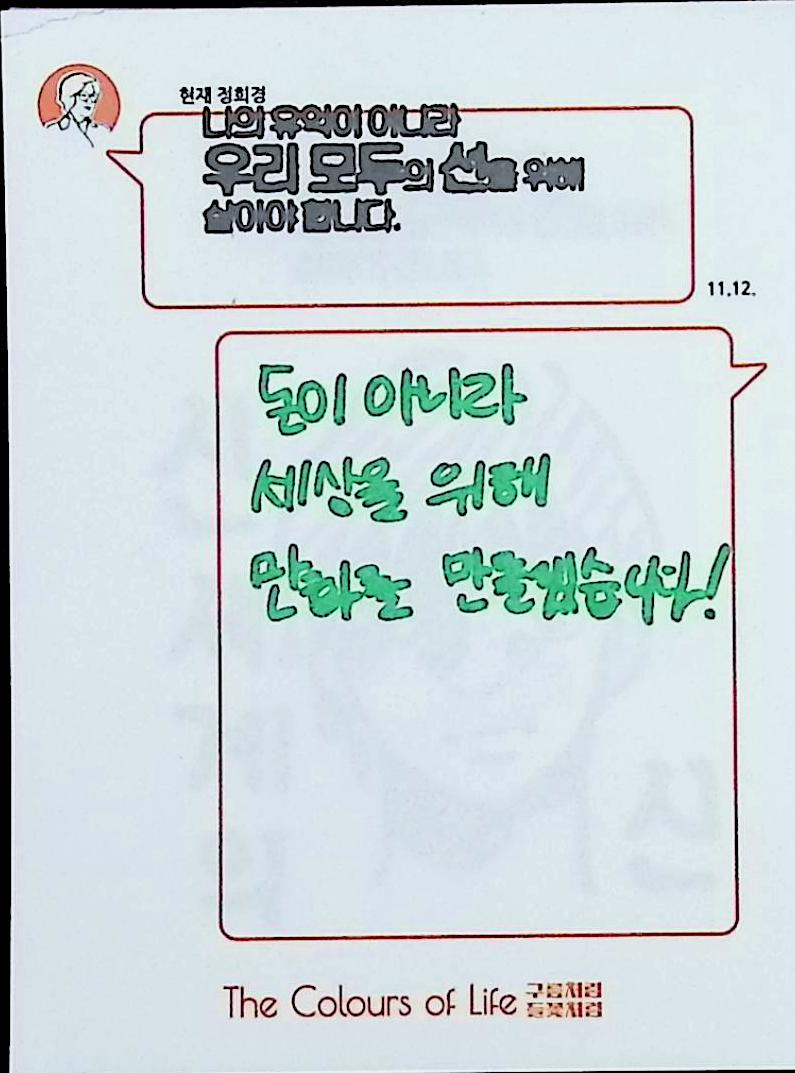 현재 정희경
나의 유익이 아니라
우리 모두의 선을 위해
살아야 합니다.
11.12.
돈이 아니라
세상을 위해
만화를 만들겠습니다!
The Colours of Life 구름처럼
들꽃처럼